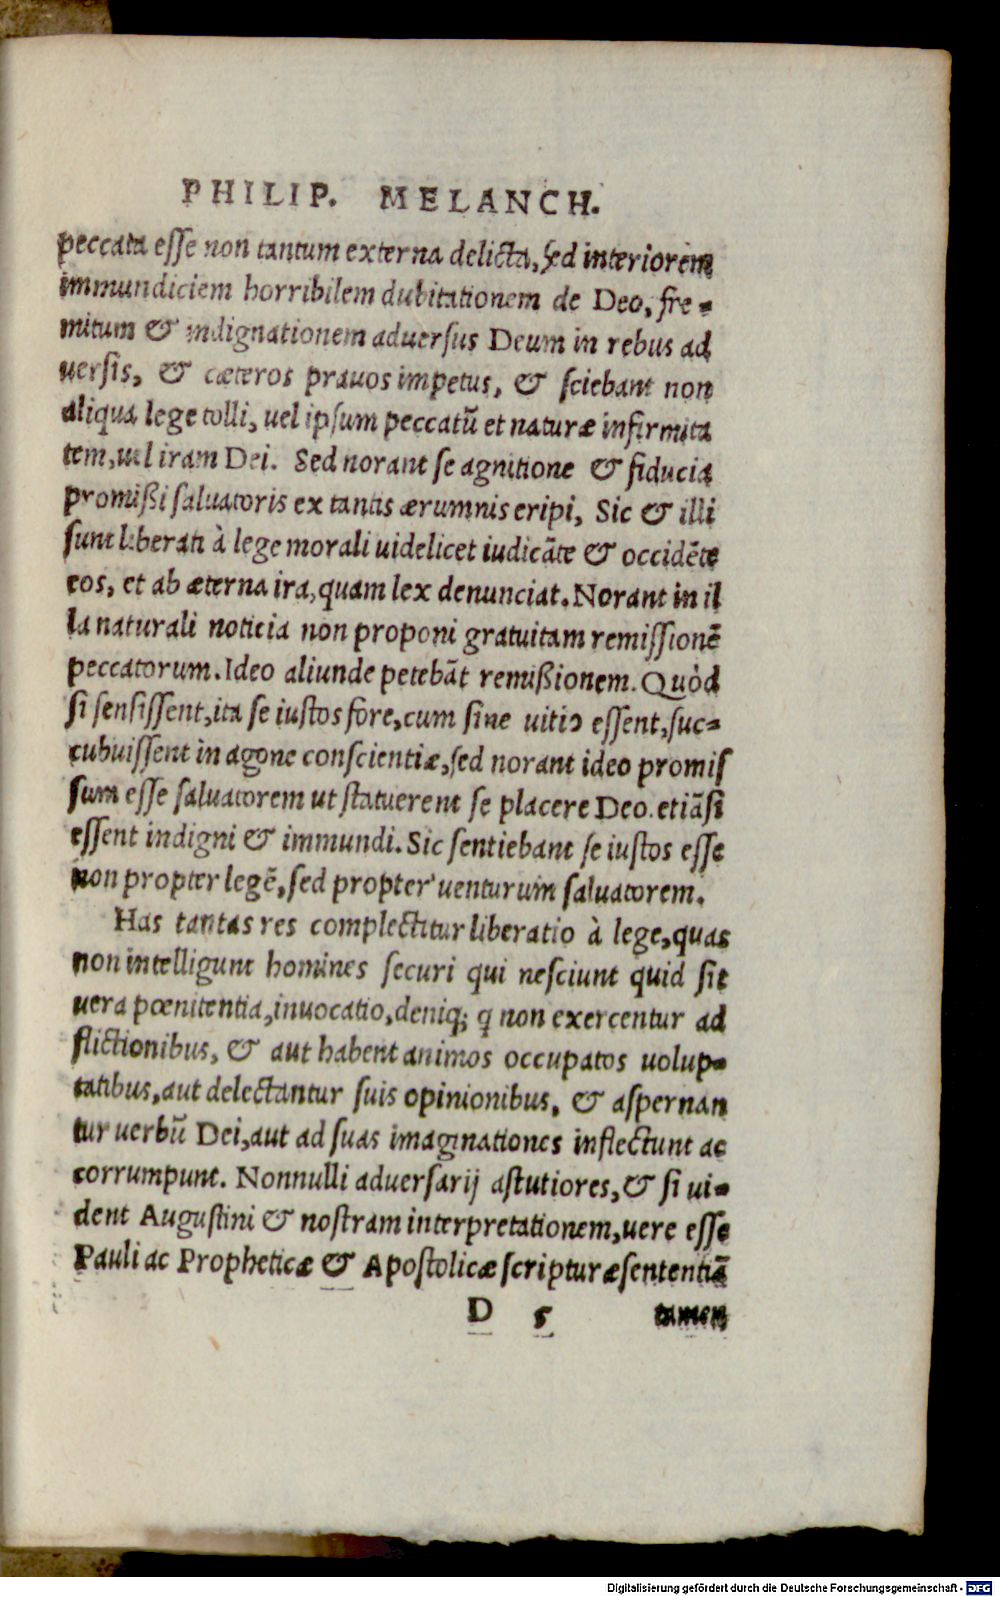 PHILIP. MELANCH.
peccata esse non tantum externa delicta, sed interiorem
immundiciem horribilem dubitationem de Deo, fre-
mitum & indignationem aduersus Deum in rebus ad
uersis, & cæteros prauos impetus, & sciebant non
aliqua lege tolli, uel ipsum peccatū et naturæ infirmita
tem, uel iram Dei. Sed norant se agnitione & fiducia
promißi saluatoris ex tantis ærumnis eripi, Sic & illi
sunt liberati à lege morali uidelicet iudicāte & occidēte
eos, et ab æterna ira, quam lex denunciat. Norant in il
la naturali noticia non proponi gratuitam remissionē
peccatorum. Ideo aliunde petebāt remißionem. Quòd
si sensissent, ita se iustos fore, cum sine uitio essent, suc-
cubuissent in agone conscientiæ, sed norant ideo promis
sum esse saluatorem ut statuerent se placere Deo. etiāsi
essent indigni & immundi. Sic sentiebant se iustos esse
non propter legē, sed propter uenturum saluatorem.
Has tantas res complectitur liberatio à lege, quas
non intelligunt homines securi qui nesciunt quid sit
uera pœnitentia, inuocatio, deniq; q non exercentur ad
flictionibus, & aut habent animos occupatos uolup-
tatibus, aut delectantur suis opinionibus, & aspernan
tur uerbū Dei, aut ad suas imaginationes inflectunt ac
corrumpunt. Nonnulli aduersarij astutiores, & si ui-
dent Augustini & nostram interpretationem, uere esse
Pauli ac Propheticæ & Apostolicæ scripturæ sententiā
D 5 tamen
Digitalisierung gefördert durch die Deutsche Forschungsgemeinschaft - DFG